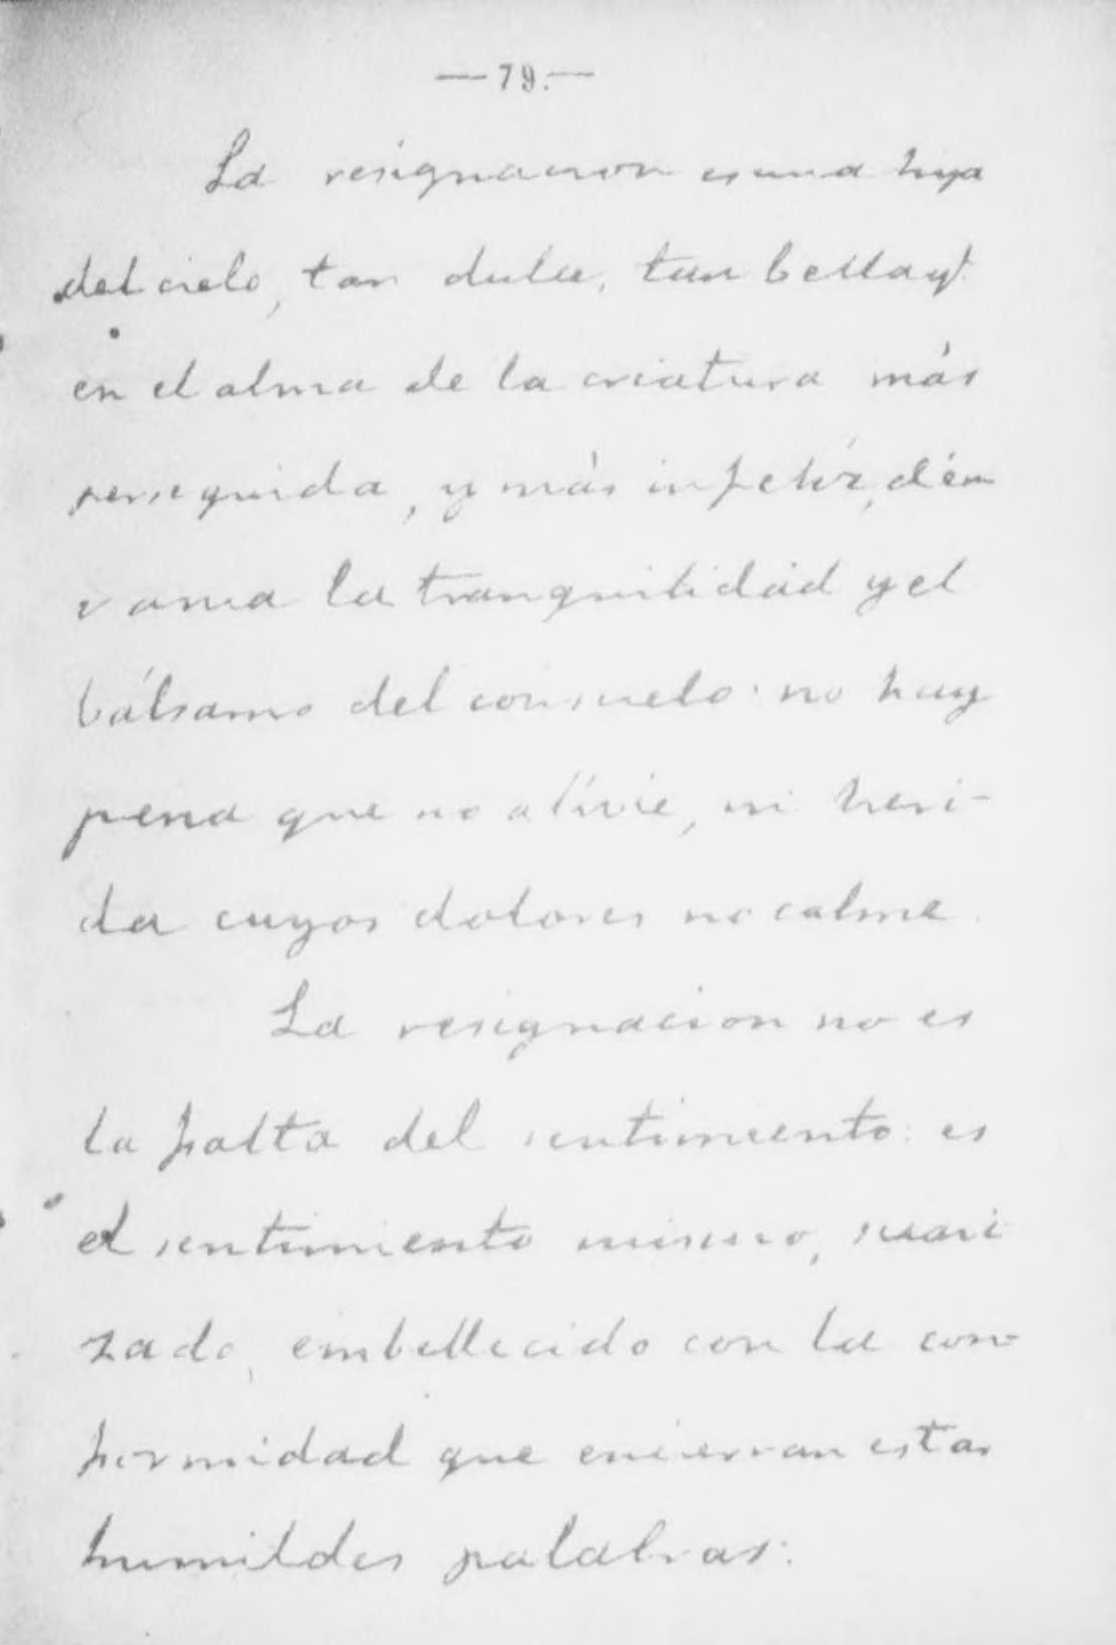 — 79.—
La resignacion es una hija
del cielo, tan dulce, tan bella q.
en el alma de la criatura más
perseguida, y más infeliz, dém
rama la tranquilidad y el
bálsamo del consuelo: no hay
pena que no alivie, ni heri-
da cuyos dolores no calme.
La resignacion no es
la falta del sentimiento: es
el sentimiento mismo, suavi
zado, embellecido con la con-
formidad que encierran estas
humildes palabras: